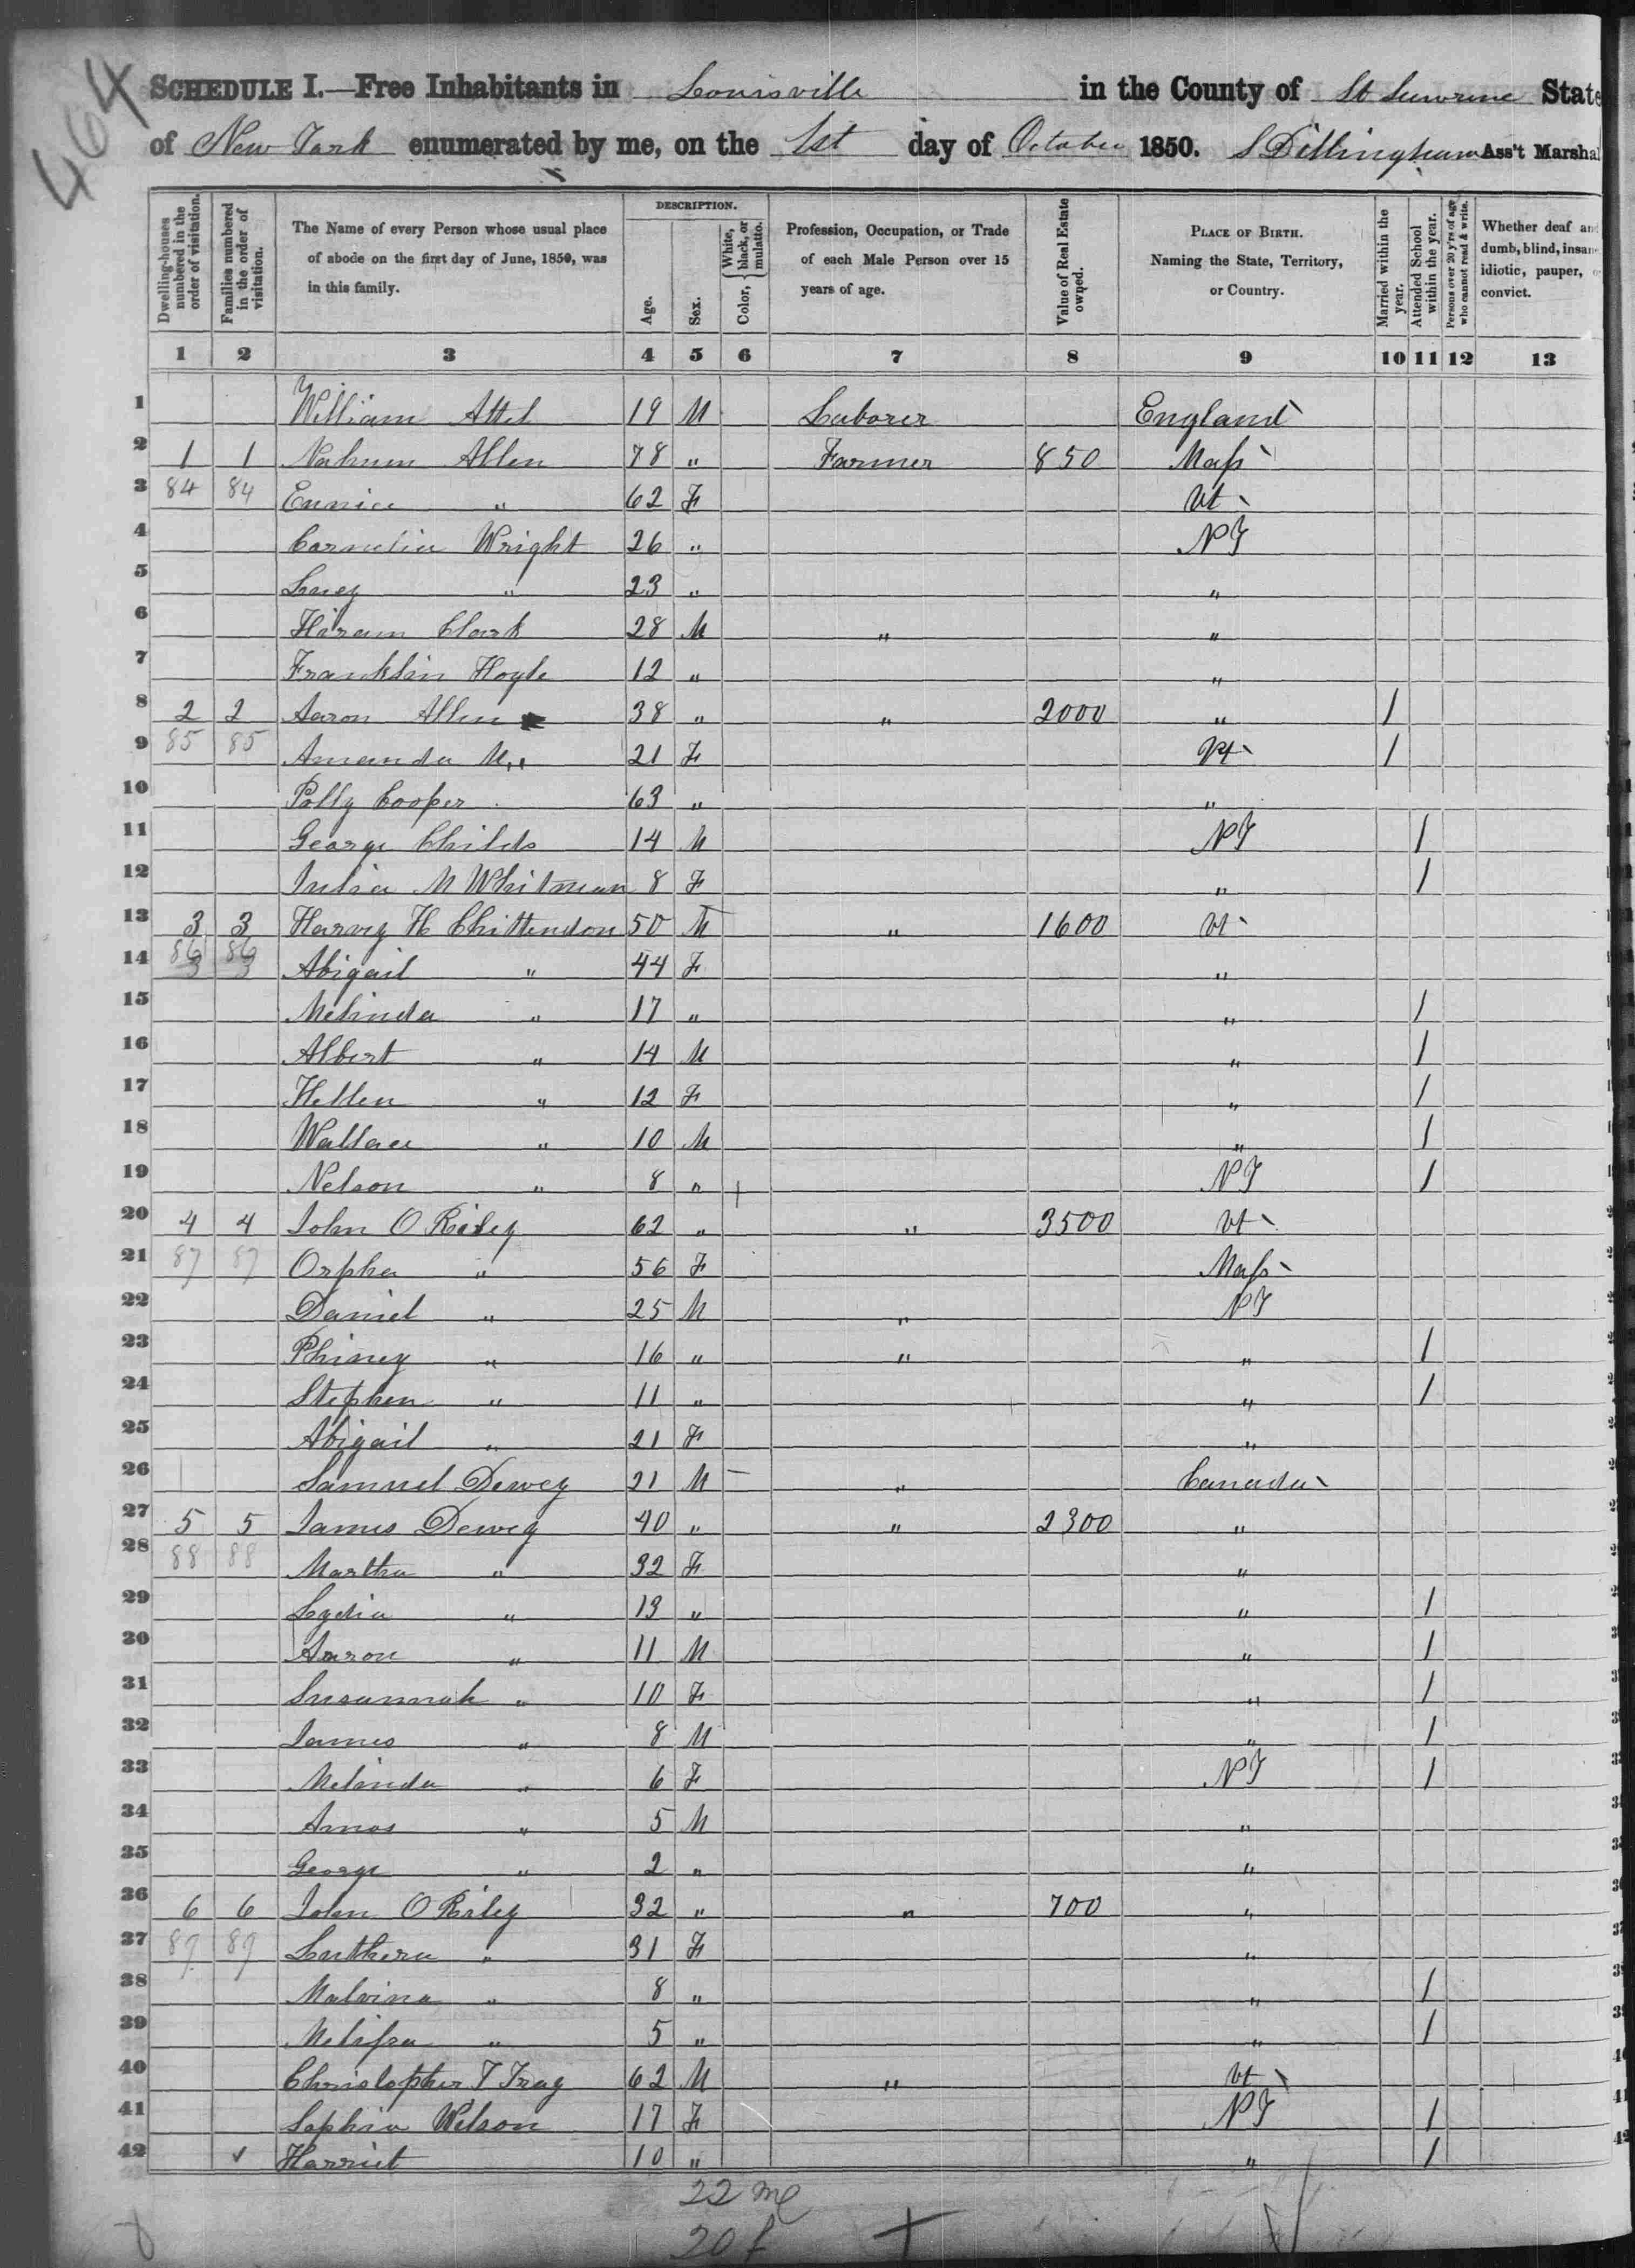 464
SCHEDULE I.—Free Inhabitants in Louisville in the County of St Lawrence State
of New York enumerated by me, on the 1st day of October 1850. S Dillingham Ass't Marshal
Dwelling-houses numbered in the order of visitation.
Families numbered in the order of visitation.
The Name of every Person whose usual place of abode on the first day of June, 1850, was in this family.
DESCRIPTION.
Age.
Sex.
Color, White, black, or mulatto.
Profession, Occupation, or Trade of each Male Person over 15 years of age.
Value of Real Estate owned.
PLACE OF BIRTH. Naming the State, Territory, or Country.
Married within the year.
Attended School within the year.
Persons over 20 y'rs of age who cannot read & write.
Whether deaf and dumb, blind, insane, idiotic, pauper, or convict.
1 2 3 4 5 6 7 8 9 10 11 12 13
1 William 19 M Laborer England
2 1 1 Nahum Allen 78 " Farmer 850 Mass
3 84 84 Eunice " 62 F Vt
4 Cornelia Wright 26 " NY
5 Lucy " 23 " "
6 Hiram Clark 28 M " "
7 Franklin Hoyle 12 " "
8 2 2 Aaron Allen 38 " " 2000 " 1
9 85 85 Amanda M. " 21 F Vt 1
10 Polly Cooper 63 " "
11 George Childs 14 M NY 1
12 Julia M Whitman 8 F " 1
13 3 3 Harvey H Chittendon 50 M " 1600 Vt
14 86 86 Abigail " 44 F "
15 Melinda " 17 " " 1
16 Albert " 14 M " 1
17 Hellen " 12 F " 1
18 Wallace " 10 M " 1
19 Nelson " 8 " NY 1
20 4 4 John O Riley 62 " " 3500 Vt
21 87 87 Orpha " 56 F Mass
22 Daniel " 25 M " NY
23 Phiney " 16 " " " 1
24 Stephen " 11 " " 1
25 Abigail " 21 F "
26 Samuel Dewey 21 M " Canada
27 5 5 James Dewey 40 " " 2300 "
28 88 88 Martha " 32 F "
29 Lydia " 13 " " 1
30 Aaron " 11 M " 1
31 Susannah " 10 F " 1
32 James " 8 M " 1
33 Melinda " 6 F NY 1
34 Amos " 5 M "
35 George " 2 " "
36 6 6 John O Riley 32 " " 700 "
37 89 89 " 31 F "
38 Malvina " 8 " " 1
39 Melissa " 5 " " 1
40 Christopher T 62 M " Vt
41 Sophia Wilson 17 F NY 1
42 Harriet 10 " " 1
22 m
20 f